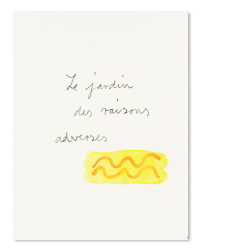 Le jardin
des raisons
adverses